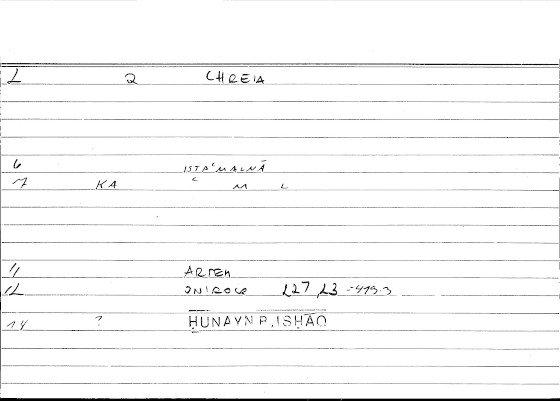 L 2 CHREIA
6 ISTAʿMALNĀ
7 KA ʿ M L
11 ARTEM
12 ONIROCR 227,23 = 419.3
14 ? ḤUNAYN B. ISḤĀQ